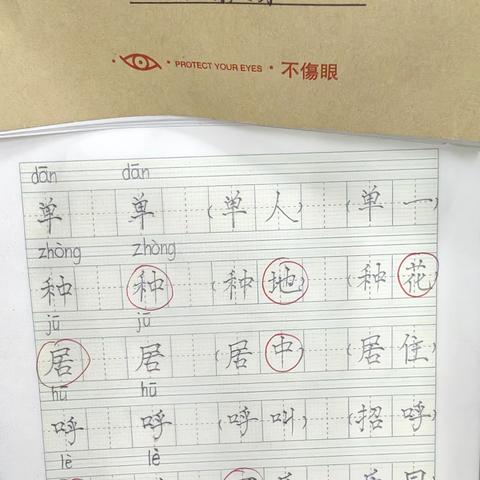 PROTECT YOUR EYES · 不傷眼
dān dān
单 单 (单人) (单一)
zhòng zhòng
种 种 (种地) (种花)
jū jū
居 居 (居中) (居住)
hū hū
呼 呼 (呼叫) (招呼)
lè lè